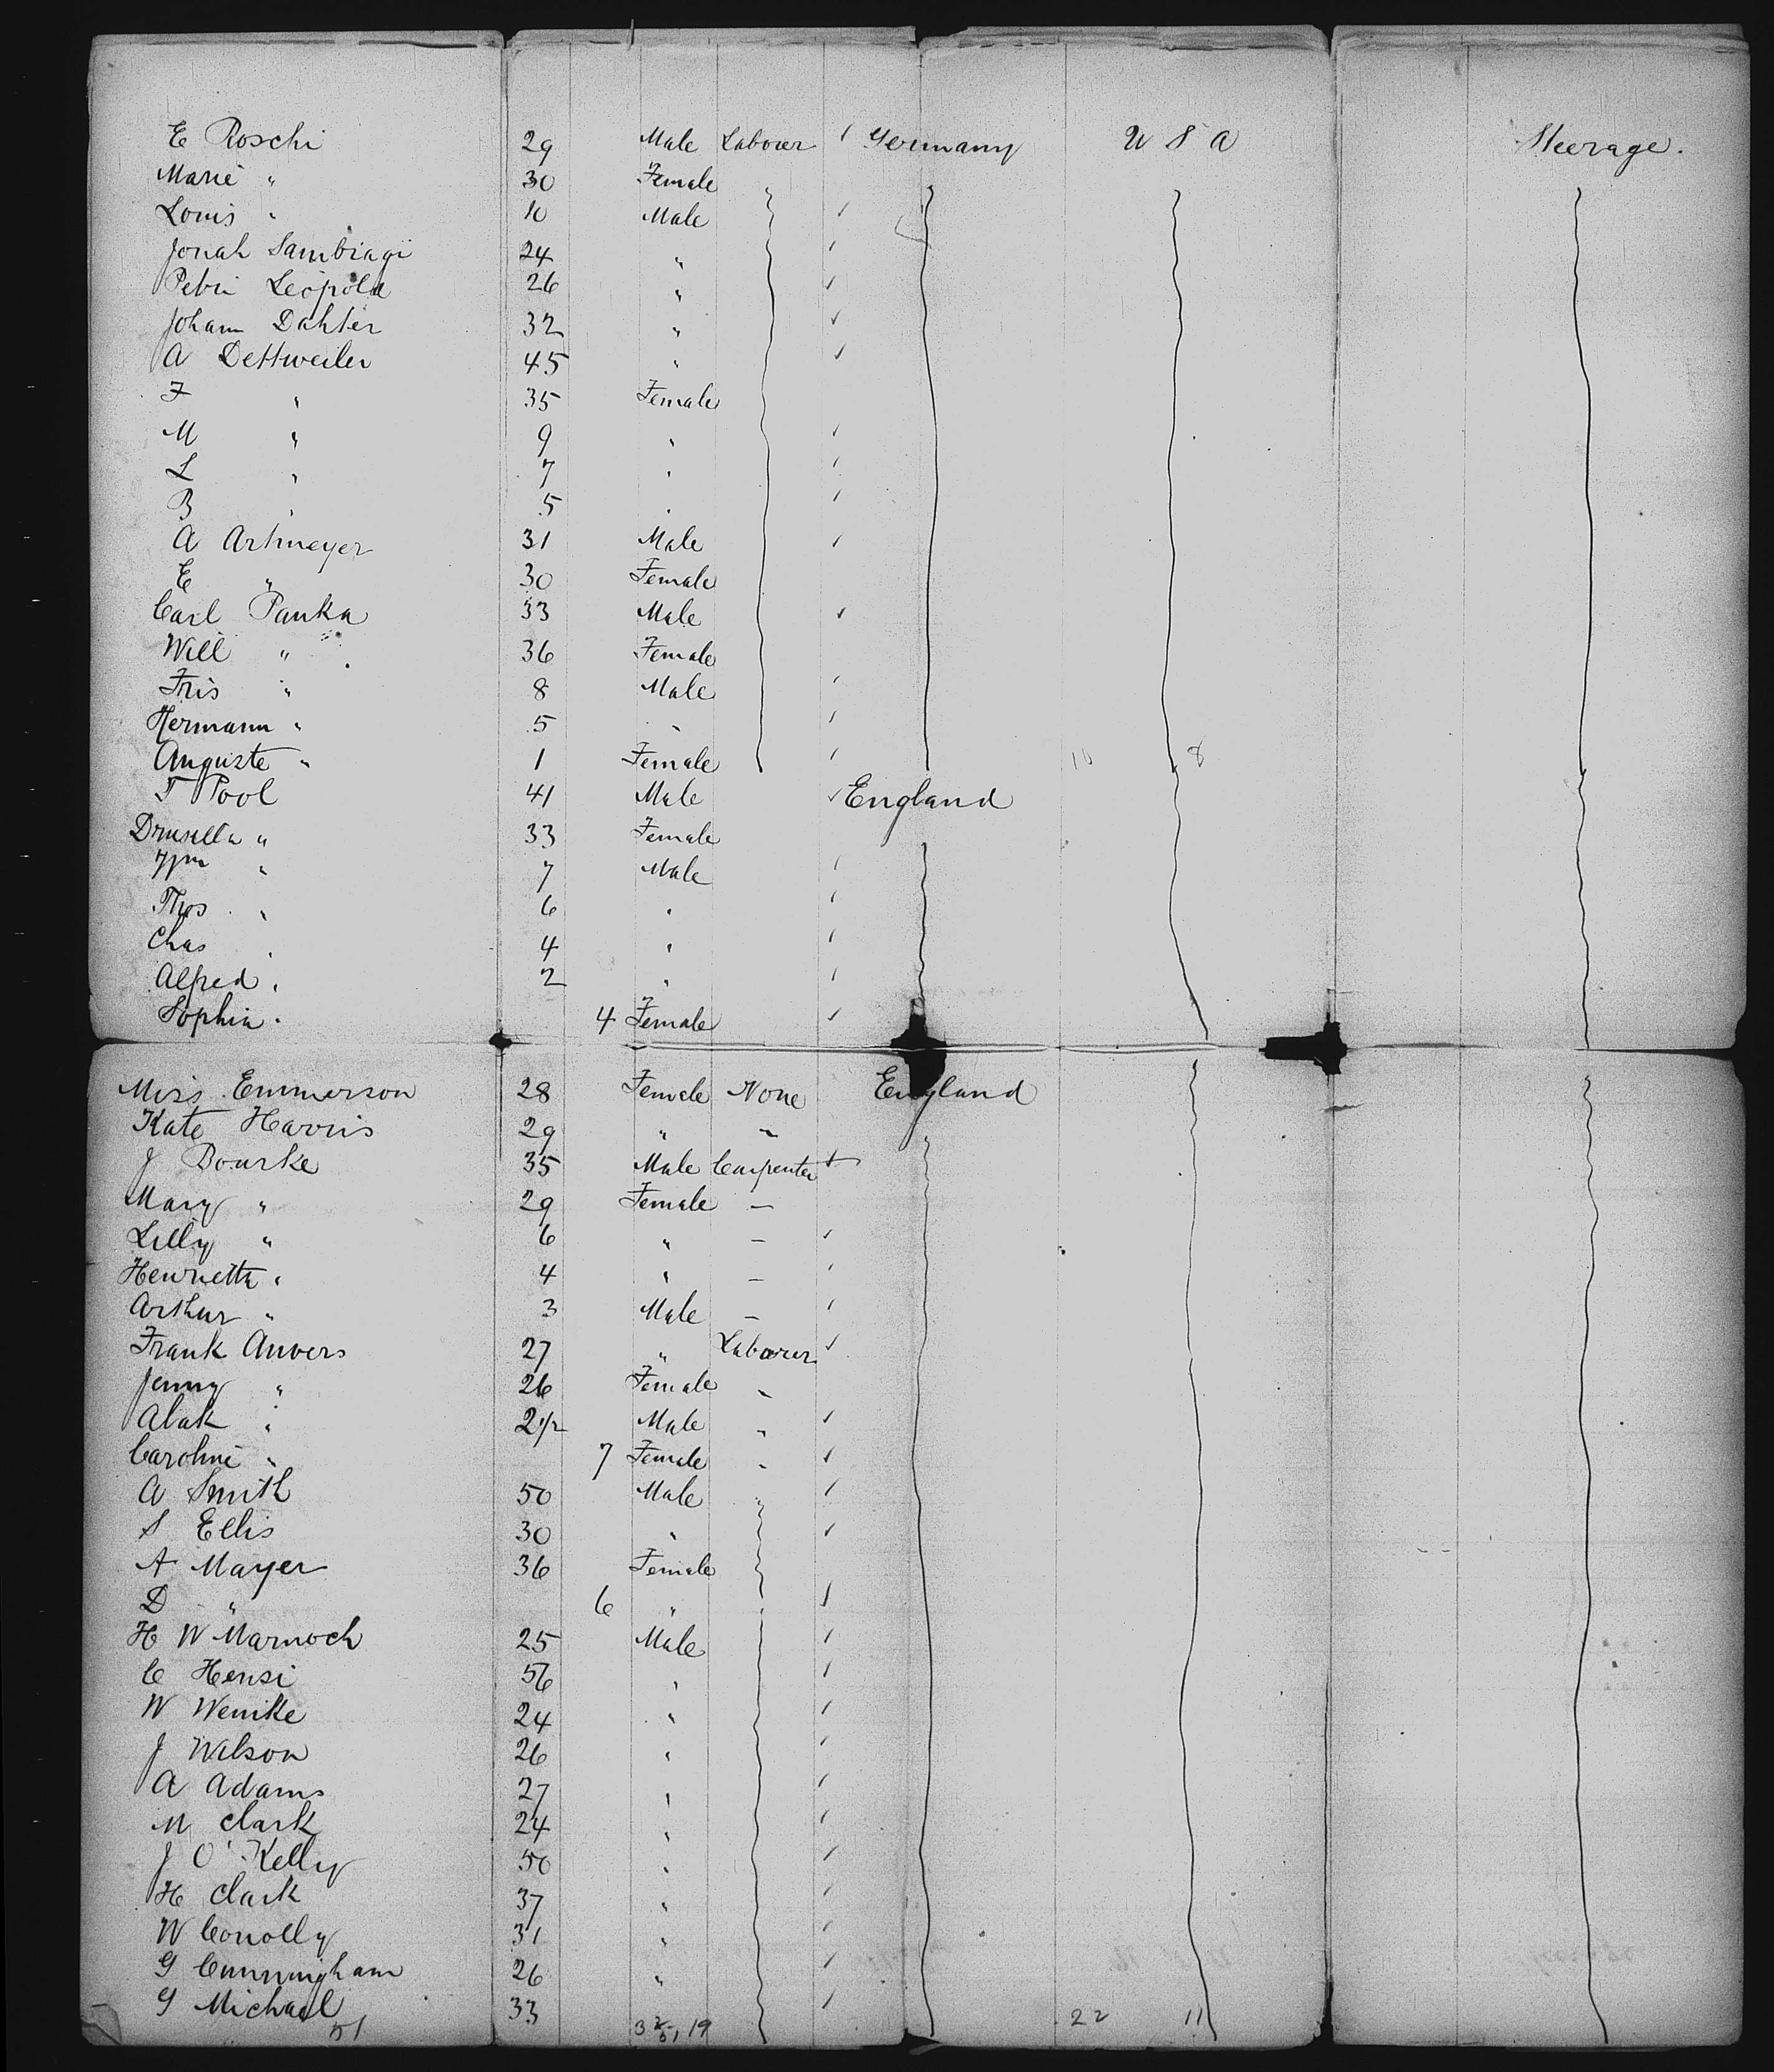 E Roschi 29 Male Labourer Germany U S A Steerage.
Marie " 30 Female
Louis " 10 Male
Jonah Sambiagi 24 "
Petri Leopold 26 "
Johann Dahler 32 "
A Dettweiler 45 "
F " 35 Female
M " 9 "
L " 7 "
B " 5 "
A Artmeyer 31 Male
E " 30 Female
Carl Panka 33 Male
Will " 36 Female
Fris " 8 Male
Hermann " 5 "
Auguste " 1 Female 10 8
T Pool 41 Male England
Drusella " 33 Female
Wm " 7 Male
Thos " 6 "
Chas " 4 "
Alfred " 2 "
Sophia " 4 Female
Miss Emmerson 28 Female None England
Kate Harris 29 " "
J Bourke 35 Male Carpenter
Mary " 29 Female —
Lilly " 6 " —
Henrietta " 4 " —
Arthur " 3 Male —
Frank Anvers 27 " Labourer
Jenny " 26 Female "
Alak " 2 1/2 Male "
Caroline " 7 Female "
A Smith 50 Male "
S Ellis 30 "
A Mayer 36 Female
D " 6 "
H W Marnoch 25 Male
C Hensi 56 "
W Wenike 24 "
J Wilson 26 "
A Adams 27 "
M Clark 24 "
J O'Kelly 50 "
H Clark 37 "
W Conolly 31 "
G Cunningham 26 "
G Michael 33
51 32 19 22 11